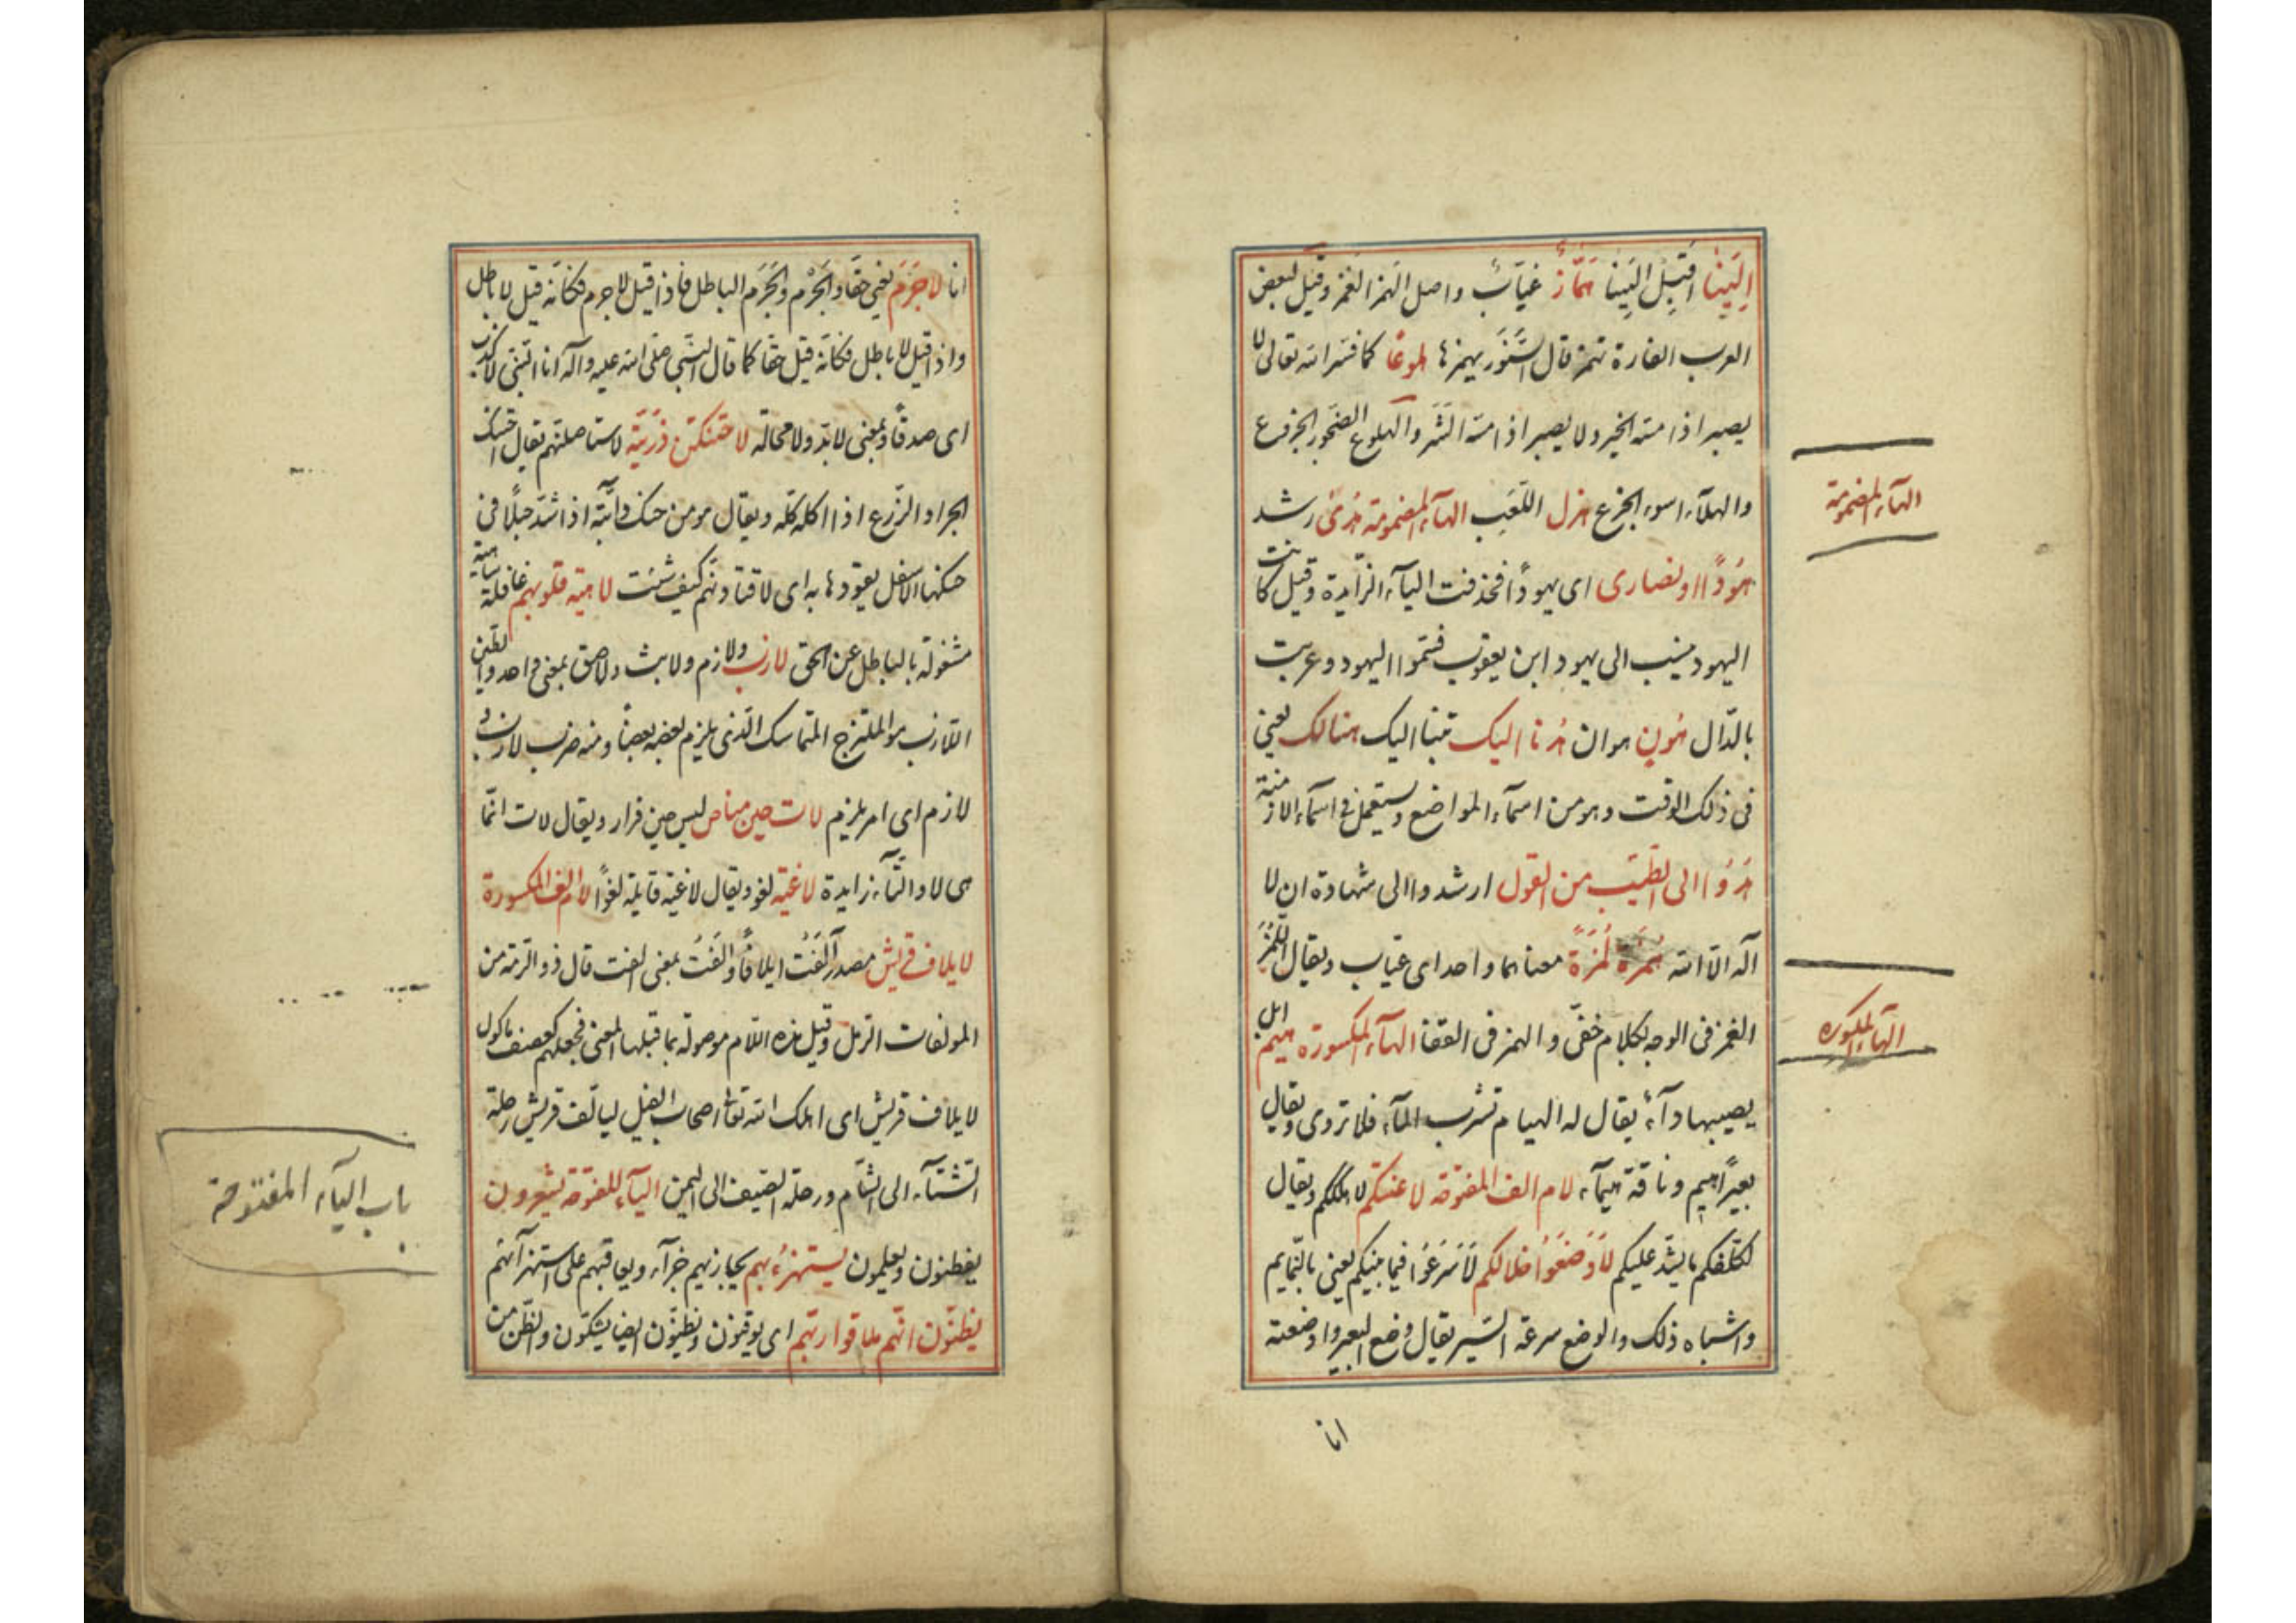 اِلَينا اَقبِل اِلَينا هَمَّاز عَيّابٌ واصل الهمز الغمز وقيل لبعض
العرب الفارة تهمز قال السِّنَّور يهمزها هلوعًا كما فسّر الله تعالى لا
يصبر اذا مسّه الخير ولا يصبر اذا مسّه الشَّر والهلوع الضّجور الجزوع
والهلآء اسوء الجزع هزل اللّعَب الهآء المضمومة هُدًى رشد
هُودًا او نصارى اى يهودًا فحذفت اليآء الزّايدة وقيل كانت
اليهود ينسب الى يهود ابن يعقوب فسّموا اليهود وعربت
بالدّال هُونٍ هوان هُدنا اليك تبنا اليك هنالك يعنى
فى ذلك الوقت وهو من اسمآء المواضع ويستعمل فى اسمآء الازمنة
هُدُوا الى الطّيّب من القول ارشدوا الى شهادة ان لا
اله الّا الله هُمَزة لُمَزَةً معناهما واحد اى عيّاب ويقال اللّمز
الغمز فى الوجه بكلام خفّى والهمز فى القفا الهآء المكسورة هيم ابل
يصيبها دآءٌ يقال له الهيام تشرب المآء فلا تروى ويقال
بعيرًاهيم وناقة هيمآء لام الف المفتوحة لاعنتكم لاهلككم ويقال
لكلّفكم ما يشدّ عليكم لَاَوضَعُوا خلالكم لَاَسرَعُوا فيما بينكم يعنى بالنّمايم
واشباه ذلك والوضع سرعة السّير يقال وضع البعير واوضعته
انا
الهآء المضمومة
الهآء المكسوره
انا لاجَرَمَ يعنى حقًا والجُرْم والجَرَم الباطل فاذا قيل لاجرم فكانّه قيل لا باطل
واذا قيل لا باطل فكانّه قيل حقًا كما قال النّبى صلّى الله عليه وآله انا النّبى لا كذب
اى صدقًا وبمعنى لابدّ ولا محالة لاحتنكنّ ذرّيّته لاستاصلنّهم يقال احتنك
الجراد الزّرع اذا اكله كلّه ويقال هو من حنك دابّته اذا شدّ حبلًا فى
حنكها الاسفل يقودها به اى لاقتادنّهم كيف شئت لاهية قلوبهم غافلة ساهية
مشغولة بالباطل عن الحق لازب ولازم ولابث ولاصق بمعنى واحد والطين
اللّازب هو الملتزج المتماسك الّذى يلزم بعضه بعضًا ومنه ضرب لازب و
لازم اى امر يلزم لات حين مناص ليس حين فرار ويقال لات انّما
هى لا والتّآء زايدة لاغية لغو ويقال لاغية قايلة لغوًا لام الف المكسورة
لايلاف قريش مصدر آلَفتُ ايلافًا واَلَفتُ بمعنى الفت قال ذو الرّمة من
المولفات الرّمل وقيل هذه اللّام موصولة بما قبلها المعنى فجعلهم كعصف ماكول
لايلاف قريش اى اهلك الله تعالى اصحاب الفيل ليالّف قريش رحلة
الشّتآء الى الشّام ورحلة الصّيف الى اليمن اليآء المفتوحة يشعرون
يفطنون ويعلمون يستهزئ بهم يجازيهم جزآء ويعاقبهم على استهزآئهم
يظنّون انّهم ملاقوا ربّهم اى يوقنون ويظنّون ايضا يشكّون والظّن من
باب اليآء المفتوحة